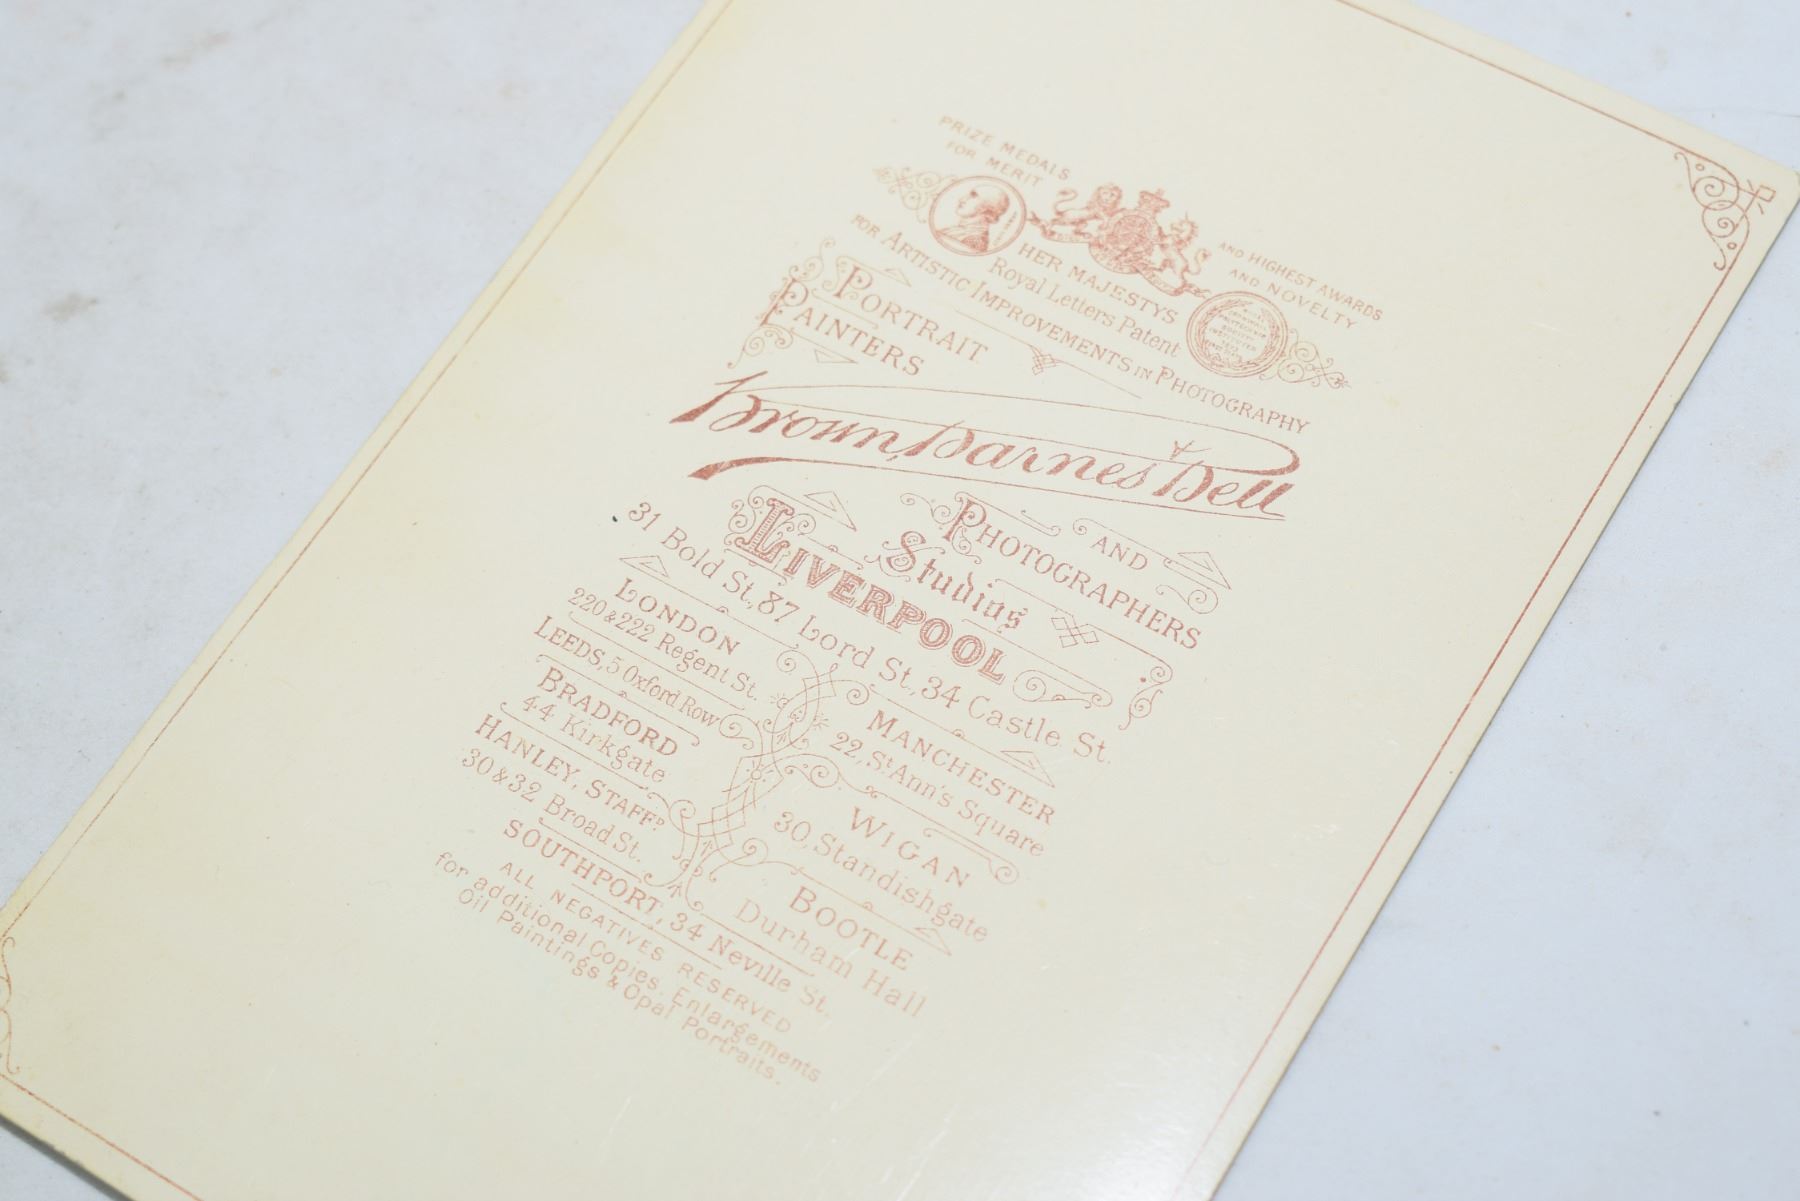 PRIZE MEDALS
FOR MERIT
AND HIGHEST AWARDS
AND NOVELTY
HER MAJESTYS
Royal Letters Patent
FOR ARTISTIC IMPROVEMENTS IN PHOTOGRAPHY
PORTRAIT
PAINTERS
Brown, Barnes & Bell
AND
PHOTOGRAPHERS
Studios
LIVERPOOL
31 Bold St., 87 Lord St., 34 Castle St.
LONDON
220 & 222 Regent St.
LEEDS, 5 Oxford Row
BRADFORD
44 Kirkgate
HANLEY, STAFFD.
30 & 32 Broad St.
MANCHESTER
22, St Ann's Square
WIGAN
30, Standishgate
BOOTLE
Durham Hall
SOUTHPORT, 34 Neville St.
ALL NEGATIVES RESERVED
for additional Copies, Enlargements
Oil Paintings & Opal Portraits.